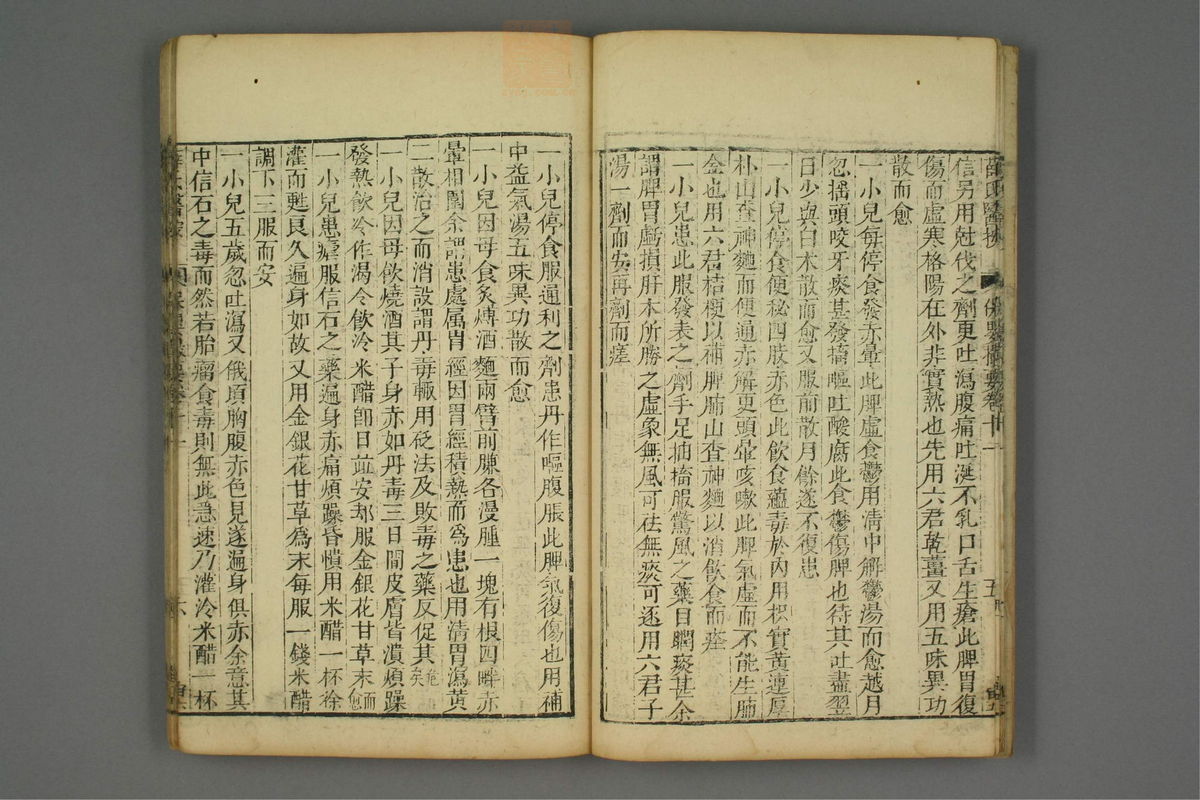 薛氏醫按 保嬰撮要卷十一 五
信另用尅伐之劑更吐瀉腹痛吐涎不乳口舌生瘡此脾胃復
傷而虛寒格陽在外非實熱也先用六君乾薑又用五味異功
散而愈
一小兒每停食發赤暈此脾虛食鬱用清中解鬱湯而愈越月
忽搖頭咬牙痰甚發搐嘔吐酸腐此食鬱傷脾也待其吐盡翌
日少與白朮散而愈又服前散月餘遂不復患
一小兒停食便秘四肢赤色此飲食蘊毒於內用枳實黃連厚
朴山查神麯而便通赤解更頭暈咳嗽此脾氣虛而不能生肺
金也用六君桔梗以補脾肺山查神麯以消飲食而痊
一小兒患此服發表之劑手足抽搐服驚風之藥目瞤痰甚余
謂脾胃虧損肝木所勝之虛象無風可祛無痰可逐用六君子
湯一劑而安再劑而瘥
一小兒停食服通利之劑患丹作嘔腹脹此脾氣復傷也用補
中益氣湯五味異功散而愈
一小兒因母食炙煿酒麵兩臂前臁各漫腫一塊有根四畔赤
暈相圍余謂患處屬胃經因胃經積熱而為患也用清胃瀉黃
二散治之而消設謂丹毒輒用砭法及敗毒之藥反促其危矣
一小兒因母飲燒酒其子身赤如丹毒三日間皮膚皆潰煩躁
發熱飲冷作渴令飲冷米醋即日並安却服金銀花甘草末而愈
一小兒患瘧服信石之藥遍身赤痛煩躁昏憒用米醋一杯徐
灌而甦良久遍身如故又用金銀花甘草為末每服一錢米醋
調下三服而安
一小兒五歲忽吐瀉又俄頃胸腹赤色見遂遍身俱赤余意其
中信石之毒而然若胎瘤食毒則無此急速乃灌冷米醋一杯